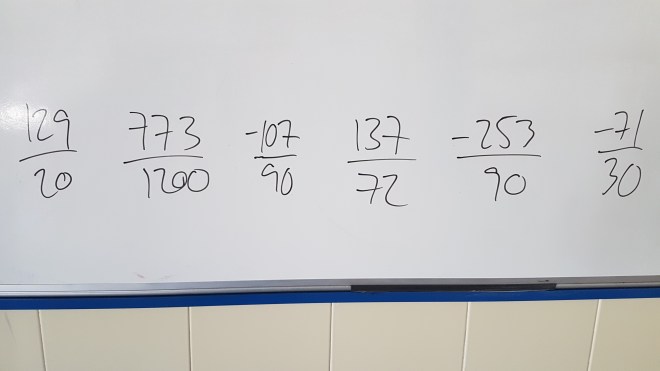 129/20 773/1200 -107/90 137/72 -253/90 -71/30